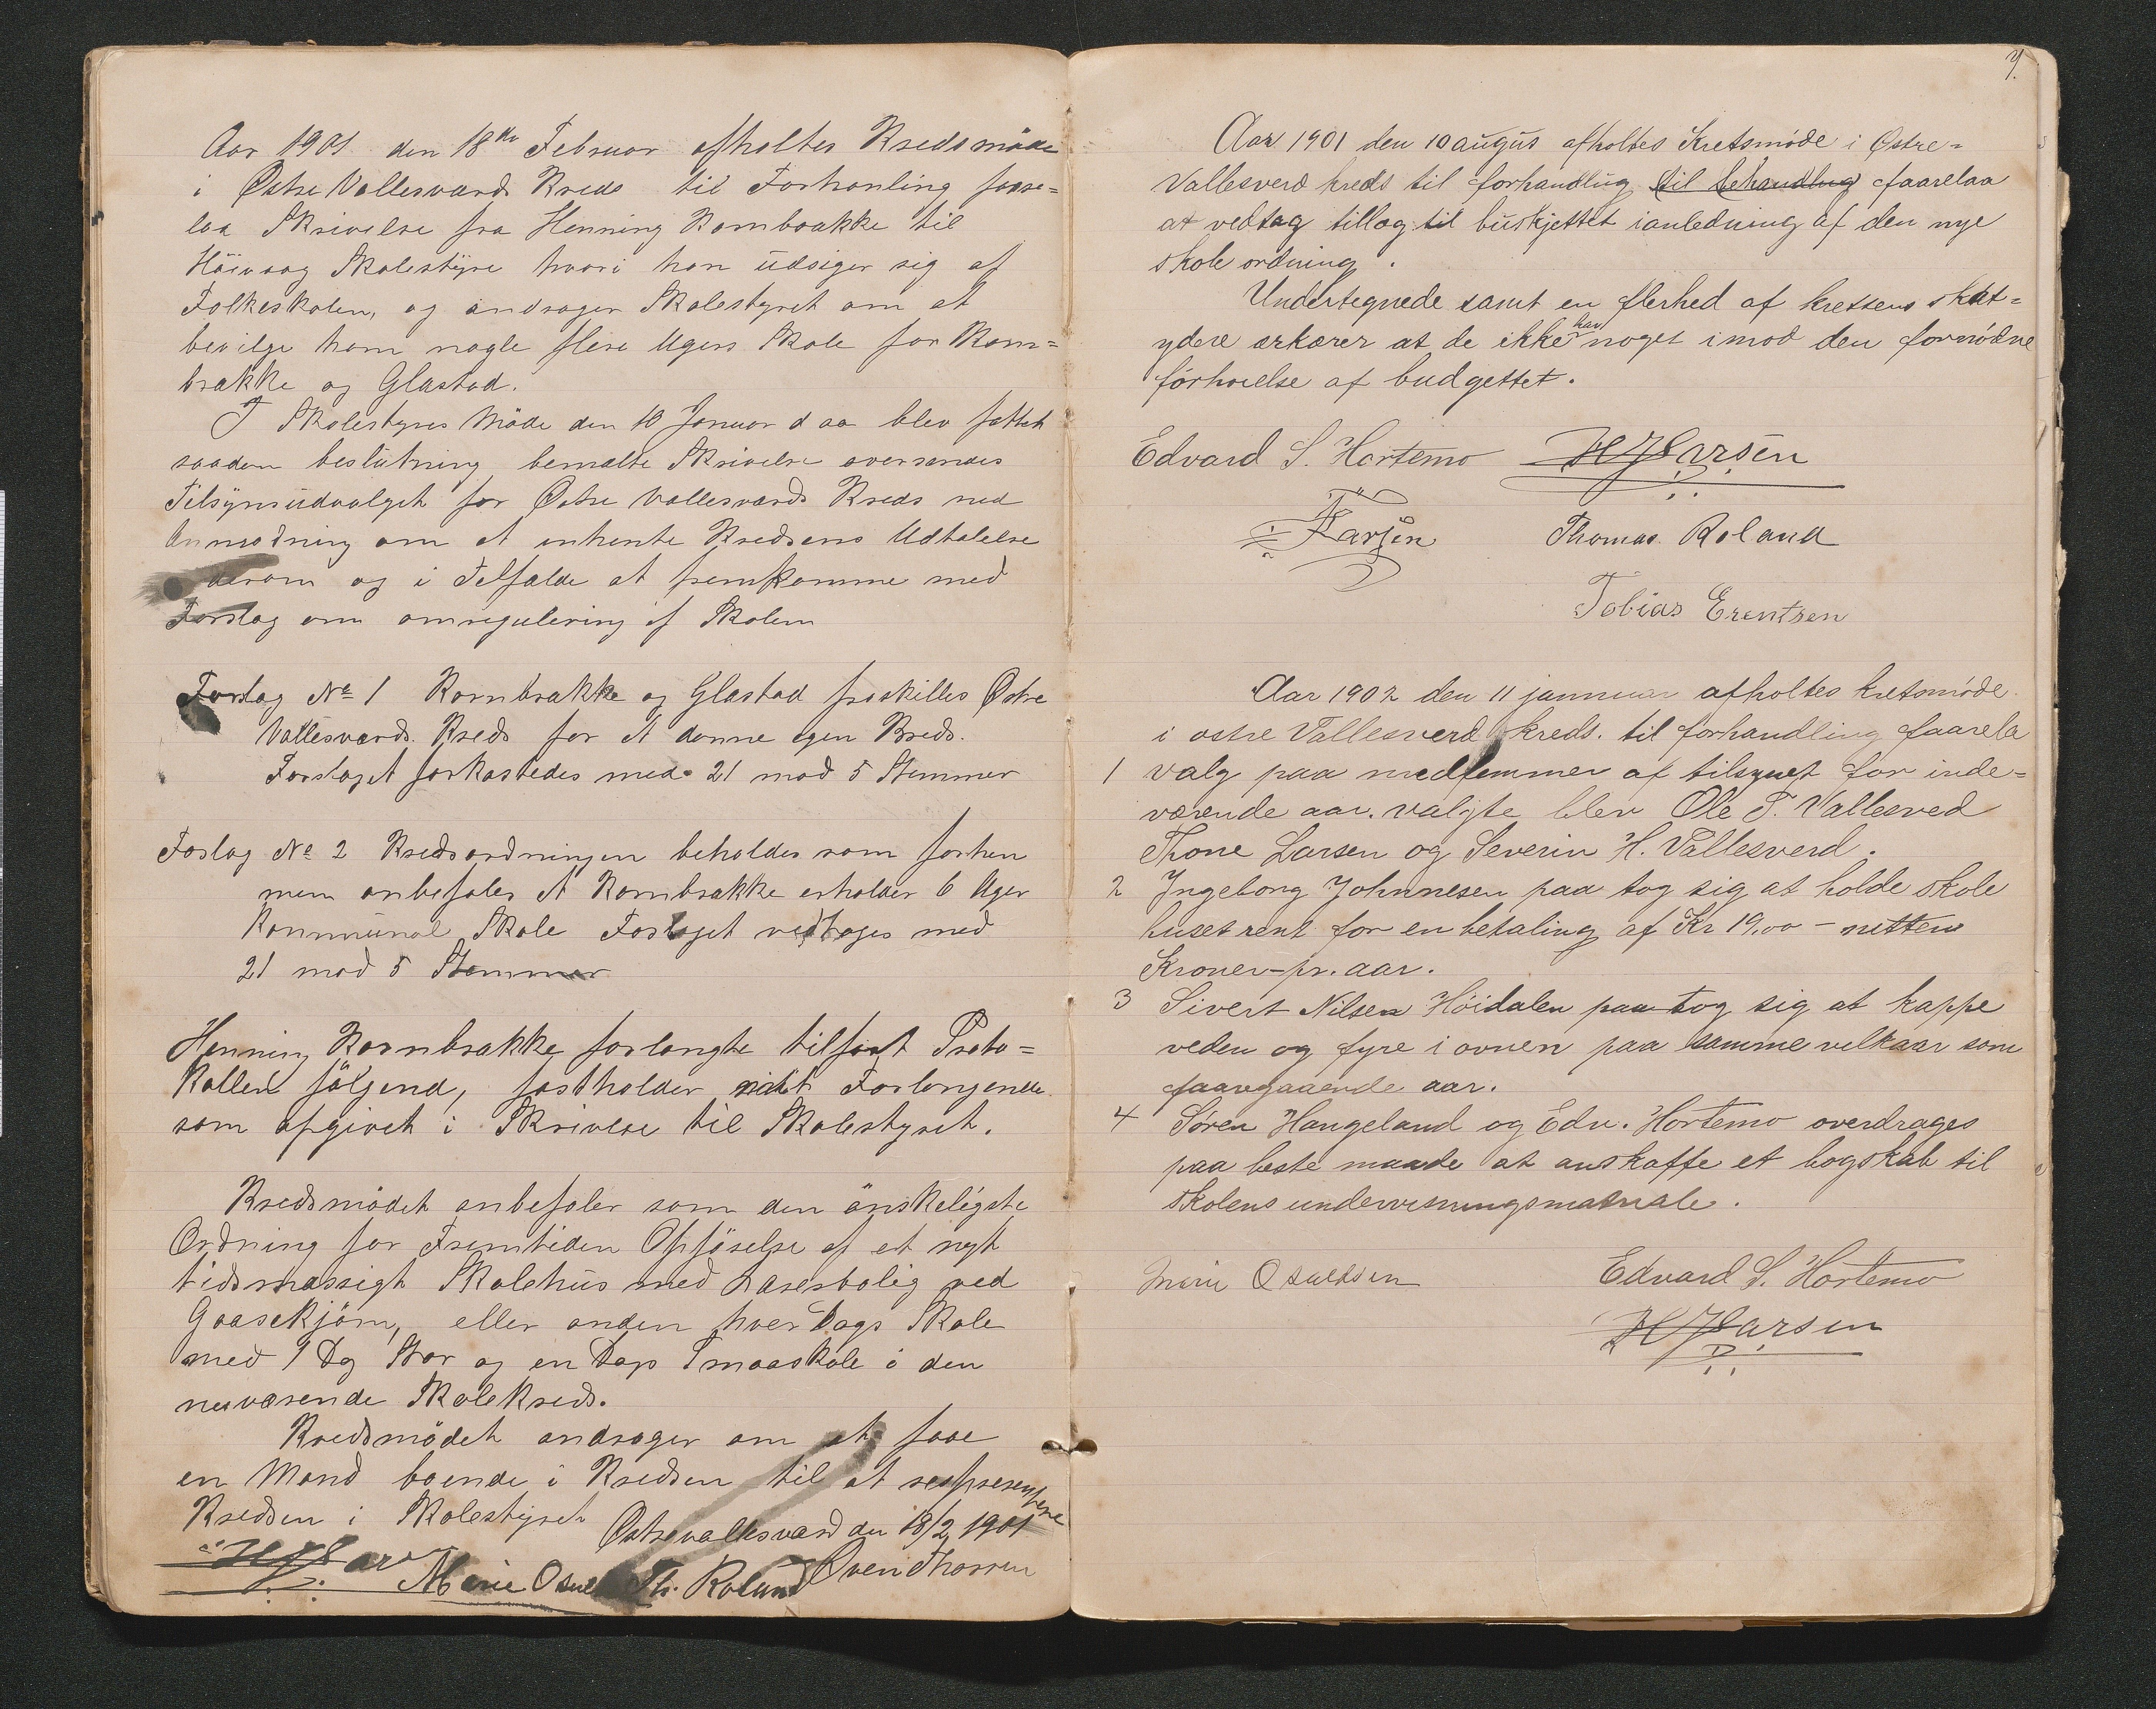 Aar 1901 den 18de Februar afholtes Kredsmöde
i Östre Vallesværds Kreds til Forhanling faare=
laa Skrivelse fra Henning Kornbrække til
Höivaag Skolestÿre hvori han üdsiger sig af
Folkeskolen, og andrager Skolestyret om at
bevilge ham nogle flere Ugers Skole for Korn=
brække og Glastad.
I Skolestyres Möde den 10 Januar d aa blev fattet
saadan beslütning bemælte Skrivelse oversendes
Tilsÿnsüdvalget for Östre Vallesværds Kreds med
Anmodning om at inhente Kredsens Udtalelse
derom og i Tilfælde at fremkomme med
Forslag om omregulering af Skolen
Forslag No 1 Kornbrække og Glastad fraskilles Östre
Vallesværds Kreds for at danne egen Kreds.
Forslaget forkastedes med 21 mod 5 Stemmer
Foslag No 2 Kredsordningen beholdes som forhen
men anbefales at Kornbrække erholder 6 Uger
Kommünal Skole Foslaget vedtages med
21 mod 5 Stemmer
Henning Kornbrække forlangte tilfört Proto=
kollen fölgend, fastholder mit Forlangende
som opgivet i Skrivese til Skolestyret.
Kredsmödet anbefaler som den önskeligste
Ordning for Fremtiden Opförelse af et nyt
tidsmæssigt Skolehüs med Læresbolig ved
Gaasekjærn, eller anden hver Dags Skole
med 1 Dg Stor og en Dags Smaaskole i den
nuværende Skolekreds.
Kredsmödet andrager om at faae
en Mand boende i Kredsen til at respresentere
Kredsen i Skolestyret
Östrevallesværd den 18/2 1901
Marie Th. Roland Oven Thorsen
7.
Aar 1901 den 10 augüs afholtes Kretsmöde i Østre=
Vallesverd kreds til forhandlüg til behandlüg faarelaa
at vedtag tillæg til büskjettet i anledning af den nye
skole ordning.
Undertegnede samt en flerhed af kretsens skat=
ydere ærkærer at de ikke har noget imod den fornödne
förhöielse af budgettet.
Edvard S. Hortemo H J Larsen
T Larsen Thomas Roland
Tobias Erentsen
Aar 1902 den 11 jannuar afholtes kretsmöde
i østre Vallesverd kreds. til forhandling faarela
1 valg paa medlemmer af tilsynet for inde=
værende aar. valgte blev Ole T. Vallesved
Thone Larsen og Severin H. Vallesverd.
2 Ingeborg Johnnesen paa tog sig at holde skole
huset rent for en betaling af Kr 19.00 – nitten
Kroner – pr. aar.
3 Sivert Nilsen Höidalen paa tog sig at kappe
veden og fyre i ovnen paa samme velkaar som
faaregaaende aar.
4 Sören Haugeland og Edv. Hortemo overdrages
paa beste maade at anskaffe et bogskab til
skolens undervisningsmatriale.
Marie Osuldsen Edvard S. Hortemo
H J Larsen